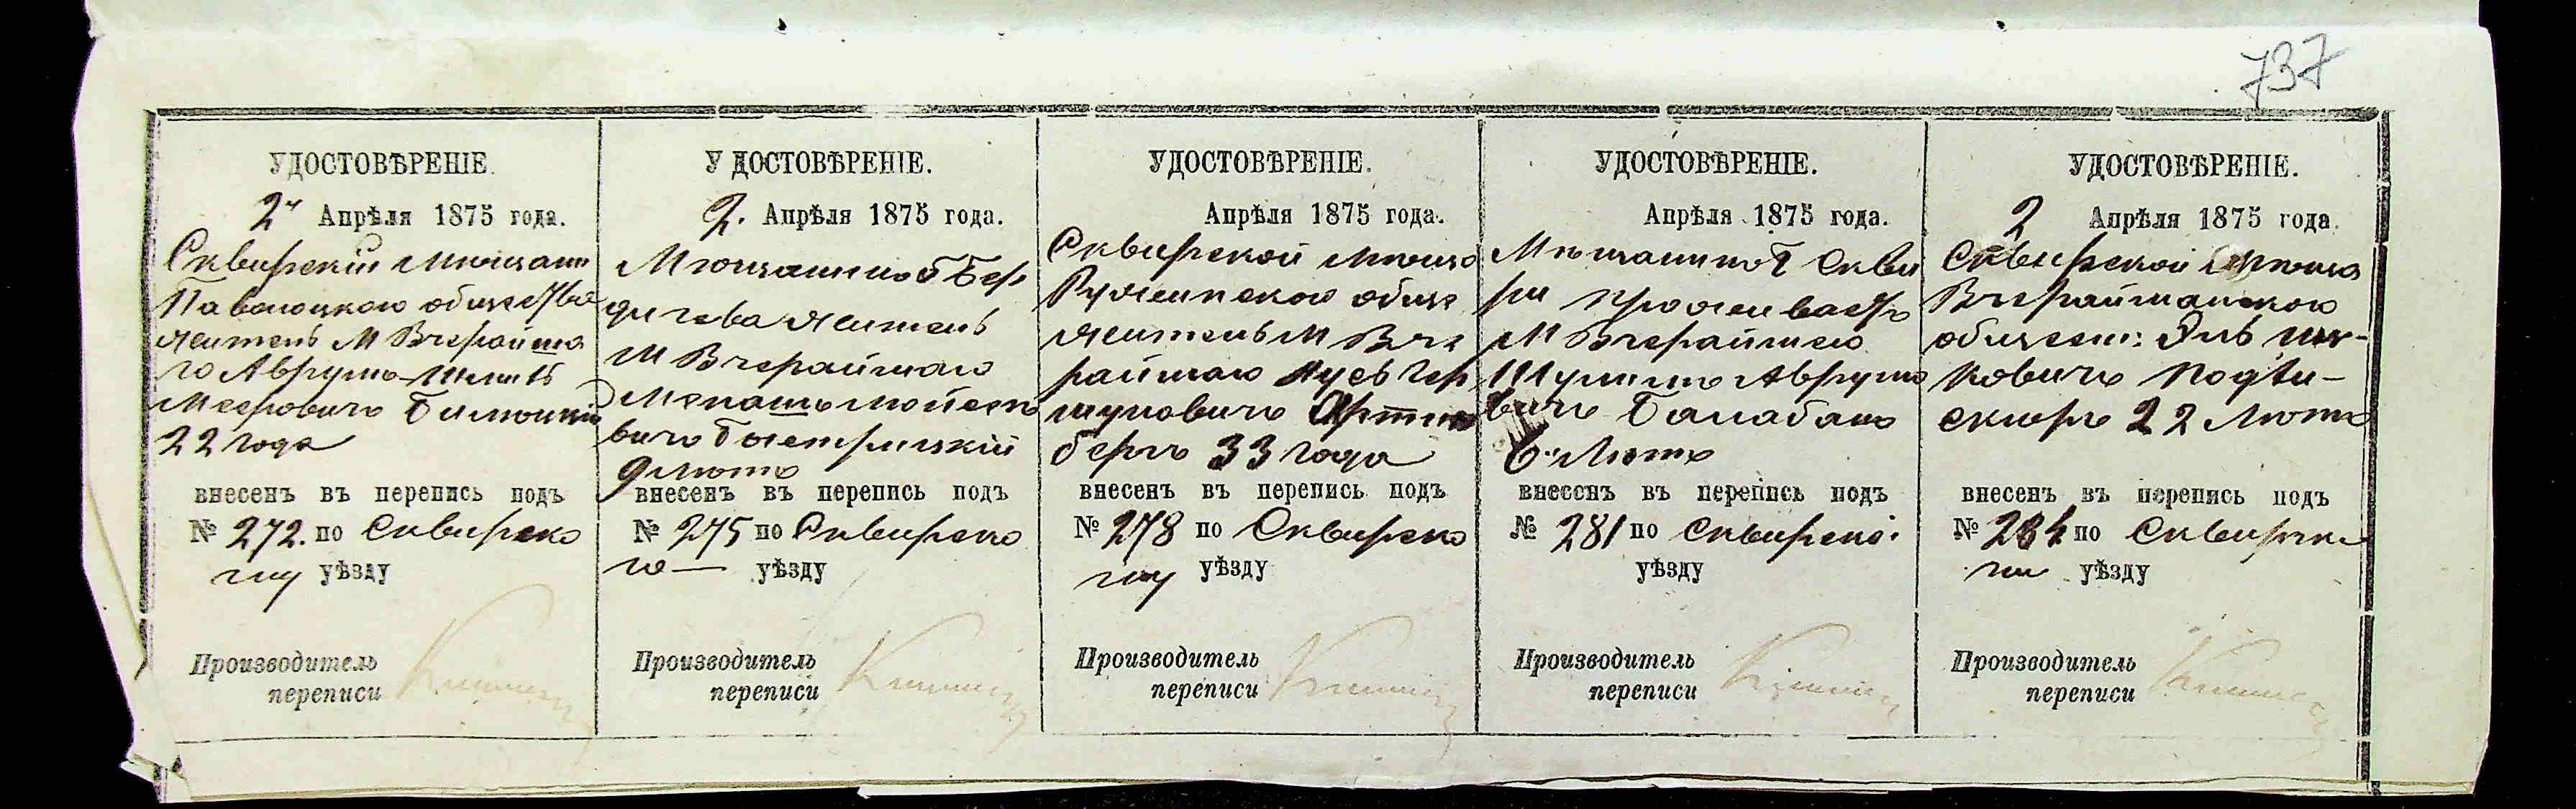 737
УДОСТОВѢРЕНІЕ.
2 Апрѣля 1875 года.
Сквирскій мющани
Паволоцкаго общества
житель М Вчерайша
го Аврумъ
Меерович
22 года
внесенъ въ перепись подъ
№ 272. по Сквирско
му уѣзду
Производитель
переписи
УДОСТОВѢРЕНІЕ.
2. Апрѣля 1875 года.
Мющанинъ Бер
дичева житель
М Вчерайшаго
Менашъ Мойсеѣ
вичъ Быстрицкій
9 люто
внесенъ въ перепись подъ
№ 275 по Сквирско
го — уѣзду
Производитель
переписи
УДОСТОВѢРЕНІЕ.
Апрѣля 1875 года.
Сквирской мюща
Ружинского обще
житель М Вче
райшаго Лусь Гер
шуновичъ
бергъ 33 года
внесенъ въ перепись подъ
№ 278 по Сквирско
му уѣзду
Производитель
переписи
УДОСТОВѢРЕНІЕ.
Апрѣля 1875 года.
Мѣщанинъ Скви
ри проживаетъ
М Вчерайшего
Шулимъ Аврумо
вичъ Балабанъ
6. люто
внесенъ въ перепись подъ
№ 281 по сквирско
уѣзду
Производитель
переписи
УДОСТОВѢРЕНІЕ.
2 Апрѣля 1875 года.
Сквирской Мюща
Вчерайшанского
общест: Эль
ковичъ
22 люто
внесенъ въ перепись подъ
№ 284 по Сквирско
му уѣзду
Производитель
переписи